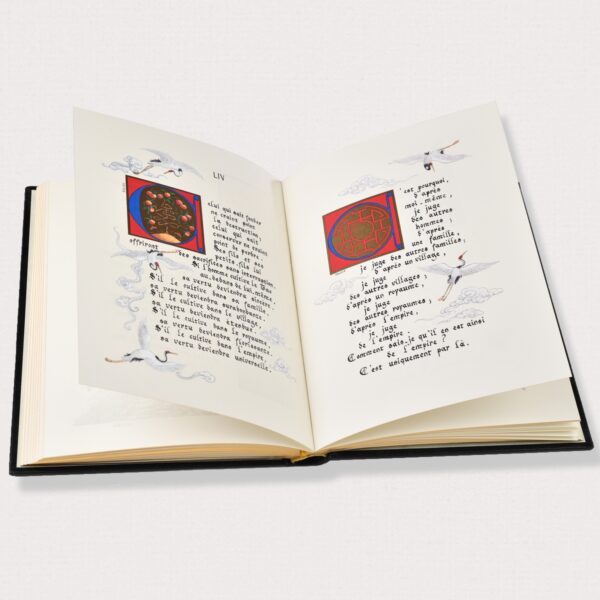 LIN
Celui qui sait fonder
ne craint point
la destruction,
celui qui sait
conserver ne craint
point de perdre.
Ses fils et ses
petits fils lui
offriront des sacrifices sans interruption.
Si l'homme cultive le Tao
au-dedans de lui-même,
sa vertu deviendra
S'il le cultive dans sa famille,
sa vertu deviendra surabondante.
S'il le cultive dans le village,
sa vertu deviendra étendue.
S'il le cultive dans le royaume,
sa vertu deviendra florissante.
S'il le cultive dans l'empire,
sa vertu deviendra universelle.
C'est pourquoi,
d'après
moi-même,
je juge
des autres
hommes ;
d'après
une famille,
je juge des autres familles ;
d'après un village,
je juge
des autres villages ;
d'après un royaume,
je juge
des autres royaumes ;
d'après l'empire,
je juge
de l'empire.
Comment sais-je qu'il en est ainsi
de l'empire ?
C'est uniquement par là.